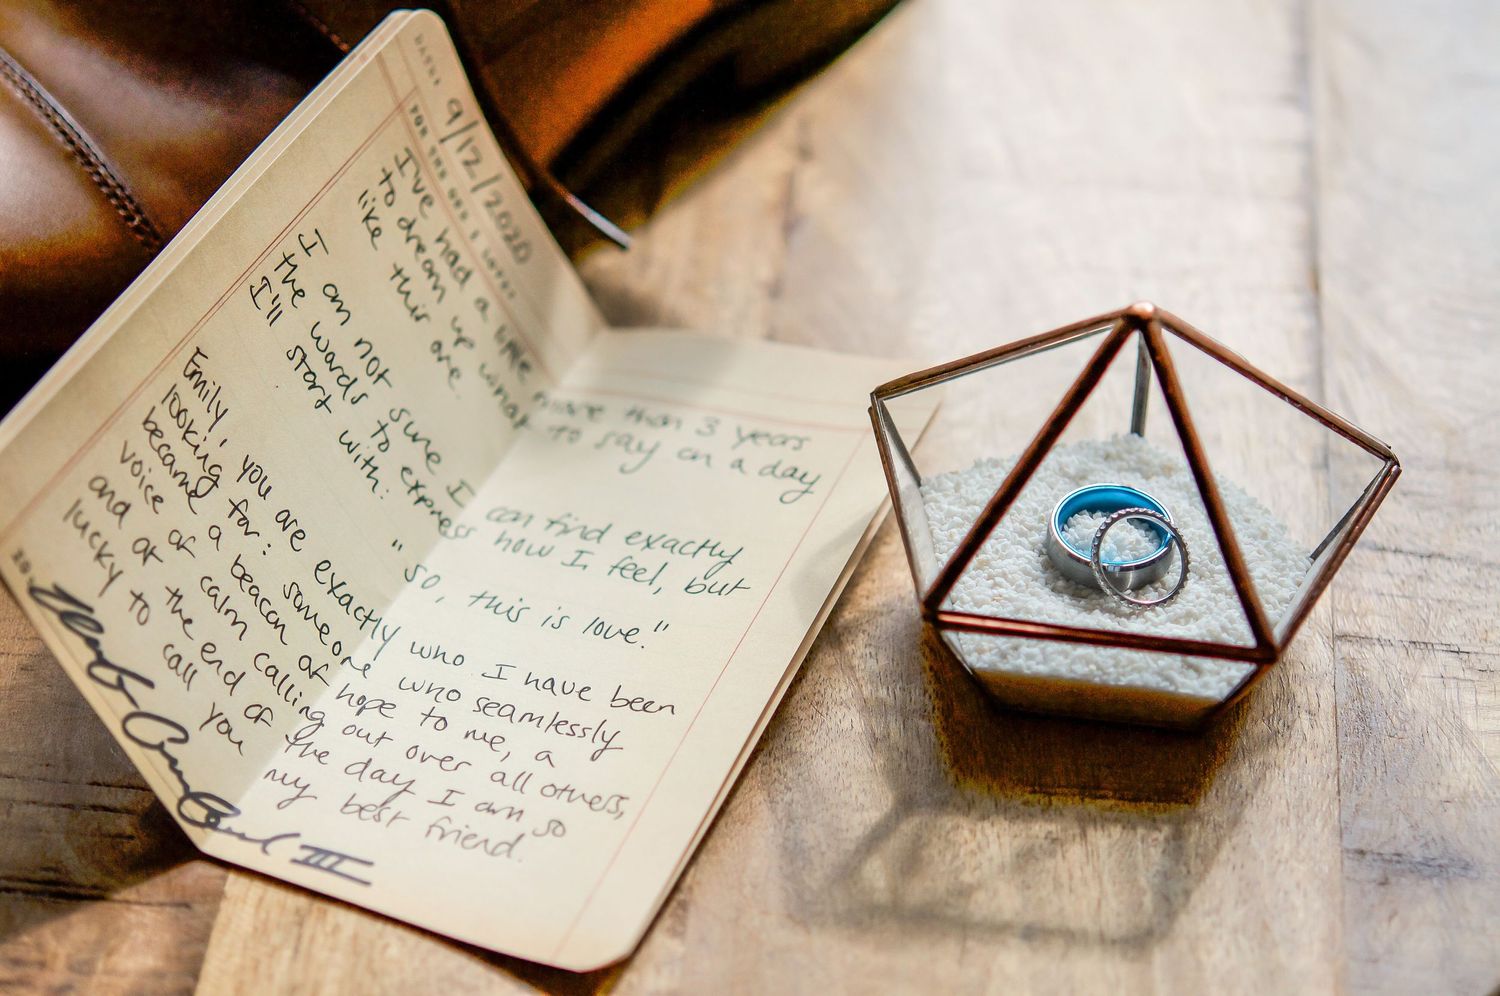 9/12/2020
I've had a little more than 3 years
to dream up what to say on a day
like this one.
I am not sure I can find exactly
the words to express how I feel, but
I'll start with: "so, this is love."
Emily, you are exactly who I have been
looking for: someone who seamlessly
became a beacon of hope to me, a
voice of calm calling out over all others,
and at the end of the day I am so
lucky to call you my best friend.
III